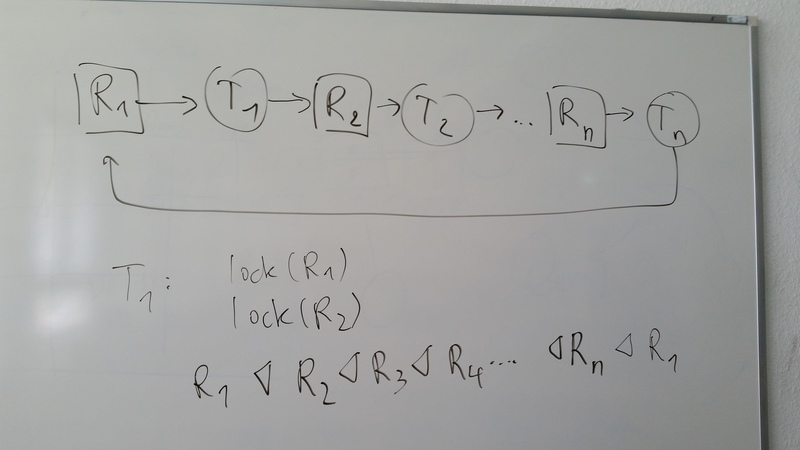 R₁ → T₁ → R₂ → T₂ → ... Rₙ → Tₙ
T₁: lock(R₁)
lock(R₂)
R₁ ⊲ R₂ ⊲ R₃ ⊲ R₄ .... ⊲ Rₙ ⊲ R₁